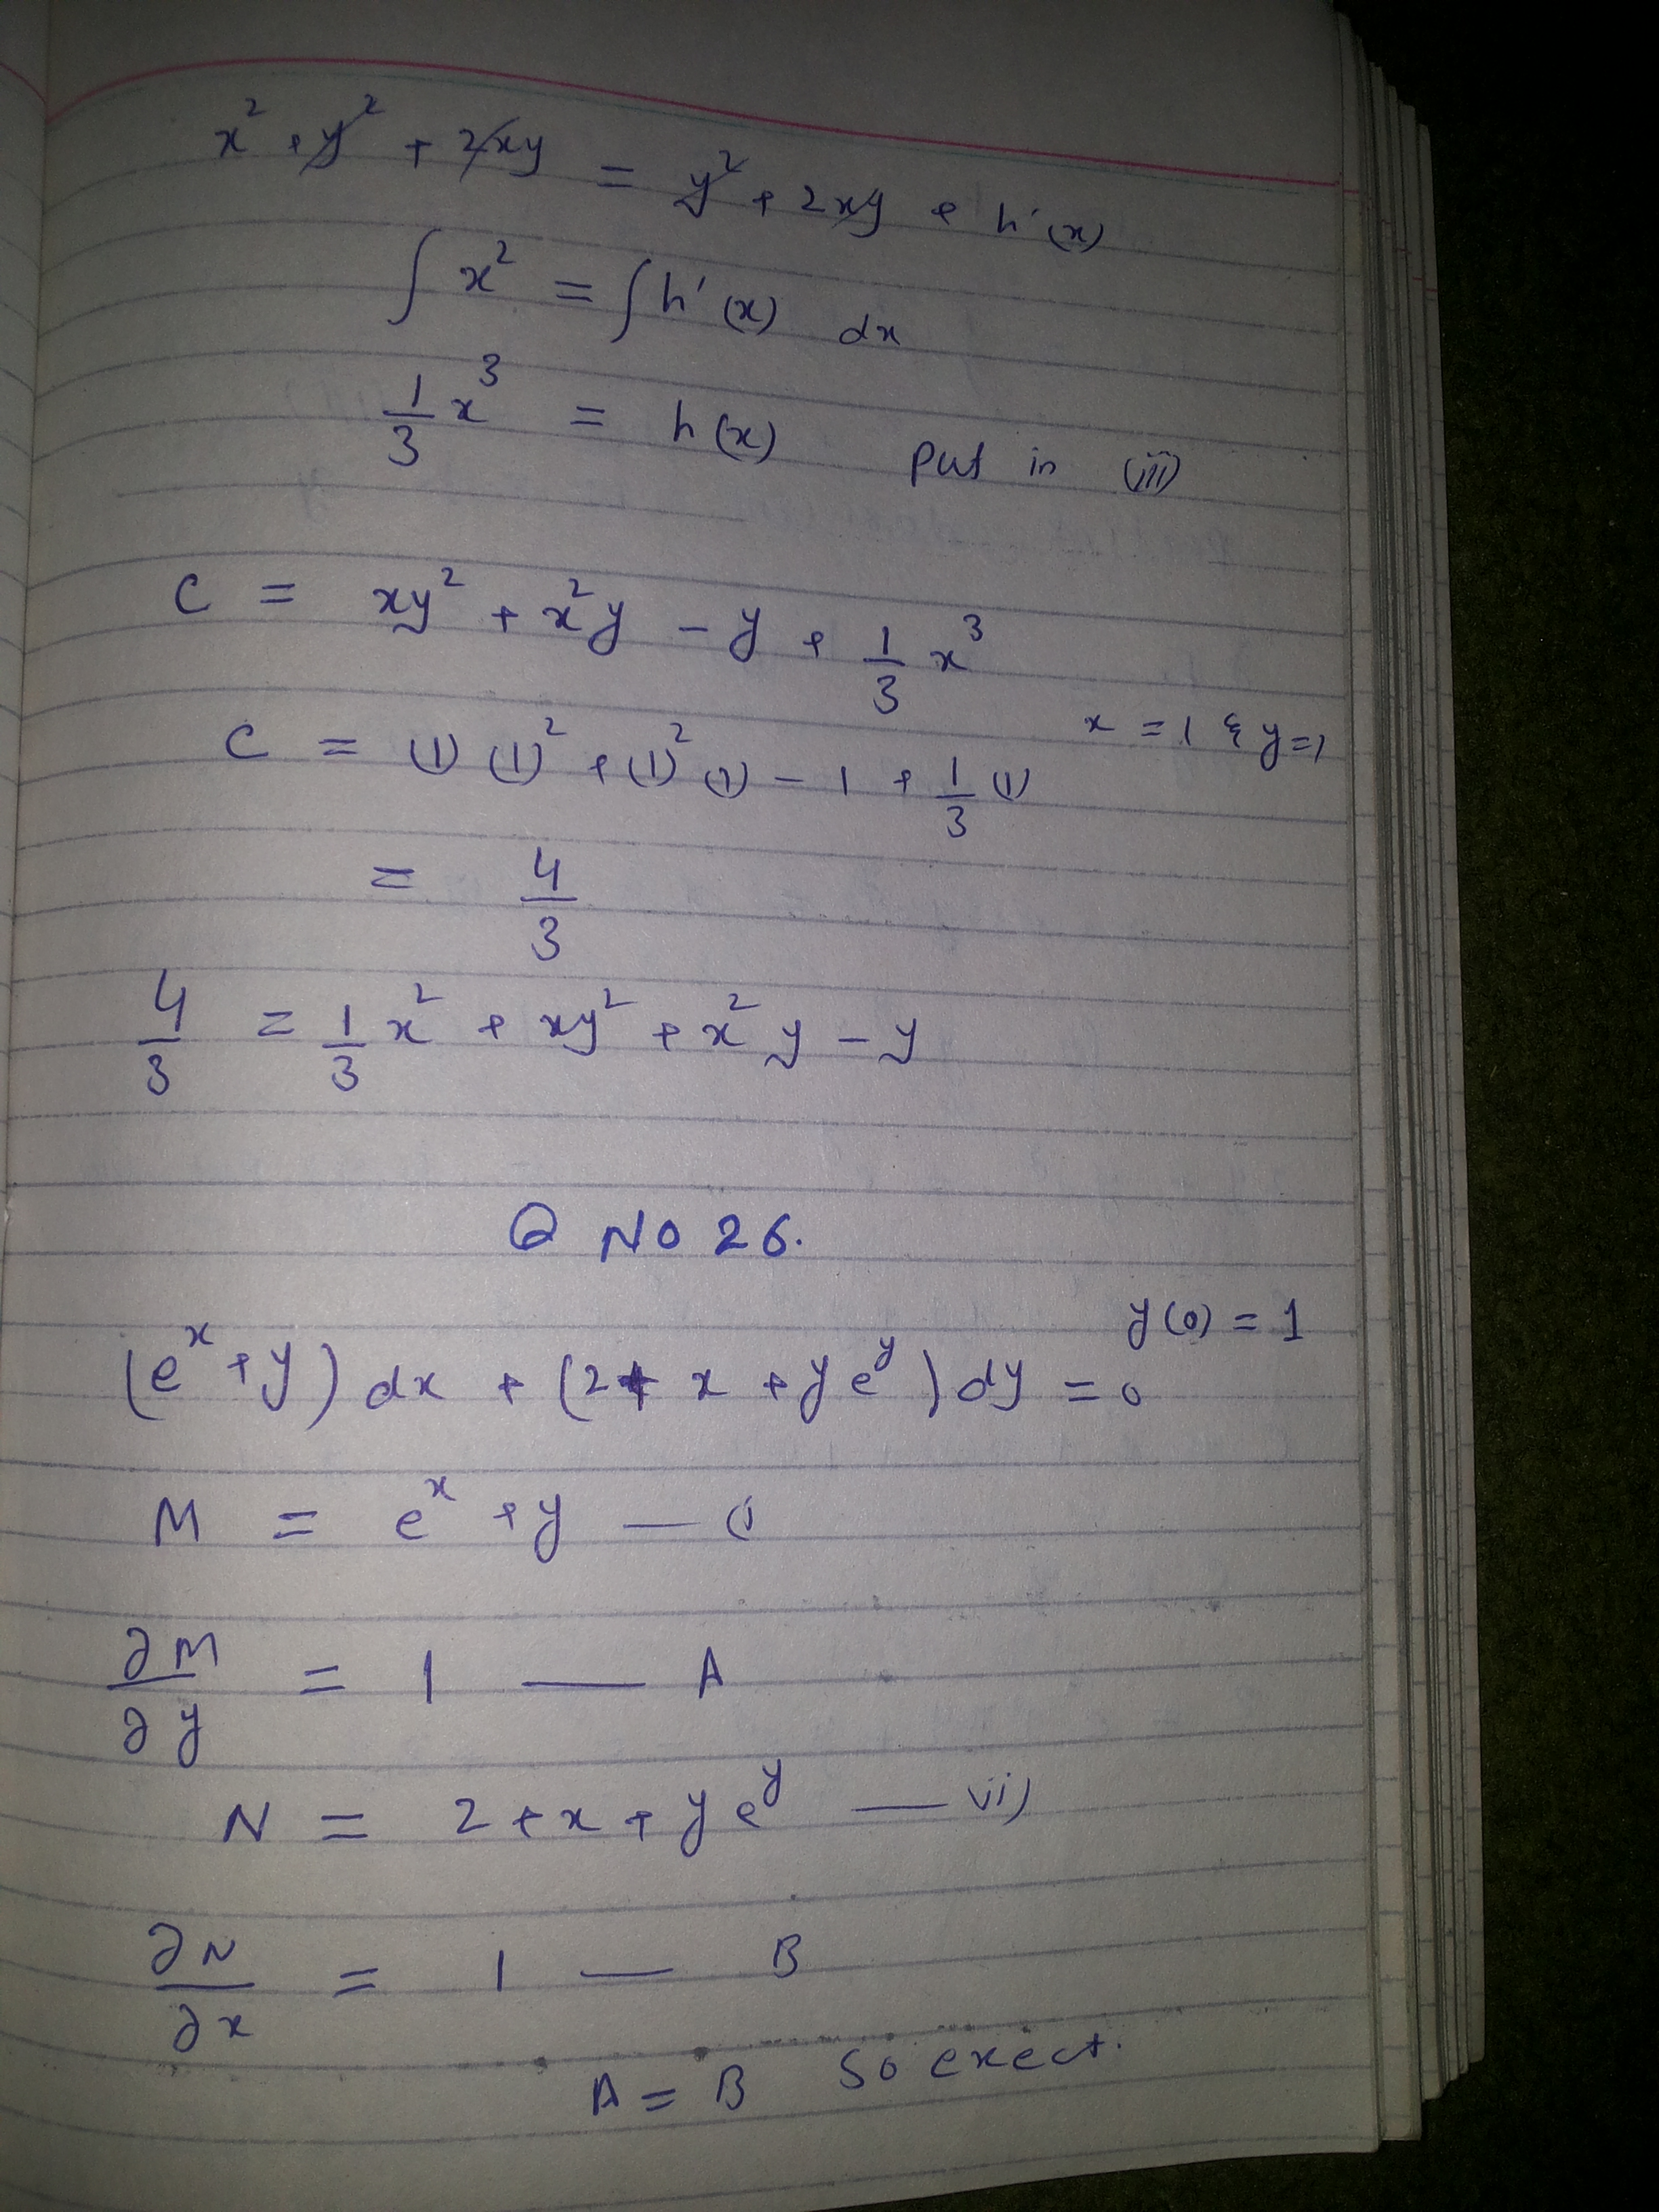 x² + y² + 2xy = y² + 2xy + h'(x)
∫ x² = ∫ h'(x) dx
1/3 x³ = h(x) Put in (iii)
C = xy² + x²y - y + 1/3 x³
x = 1 & y = 1
C = (1) (1)² + (1)² (1) - 1 + 1/3 (1)
= 4/3
4/3 = 1/3 x² + xy² + x² y - y
Q NO 26.
y(0) = 1
(e^x + y) dx + (2 + x + y e^y) dy = 0
M = e^x + y — (i
∂M/∂y = 1 — A
N = 2 + x + y e^y — ii)
∂N/∂x = 1 — B
A = B So exect.